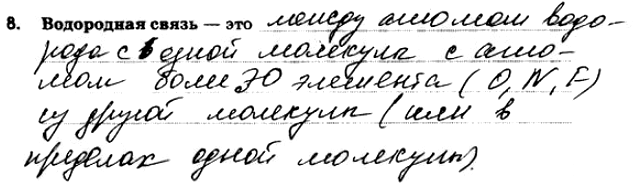 8. Водородная связь — это между атомом водо-
рода с одной молекулы с ато-
мом более ЭО элемента (O, N, F)
другой молекулы (или в
пределах одной молекулы).